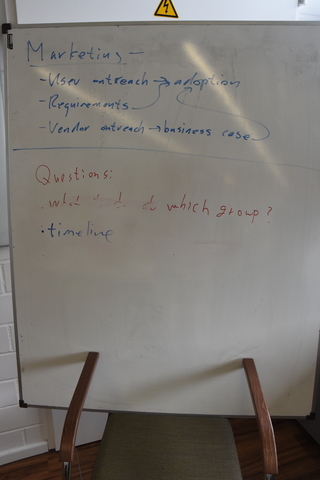 Marketing -
- User outreach → adoption
- Requirements
- Vendor outreach → business case
Questions:
. what which group?
• timeline